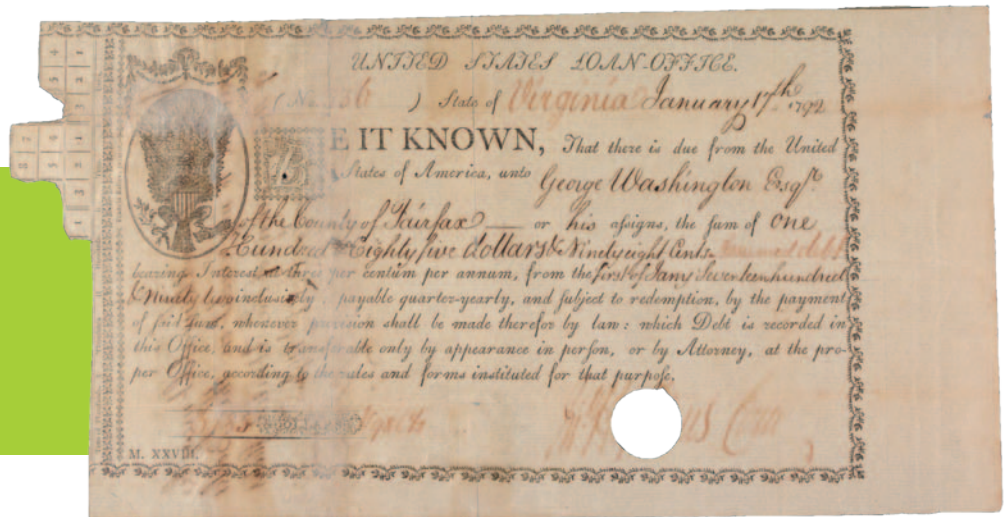 UNITED STATES LOAN-OFFICE.
(No 56 ) State of Virginia January 17th 1792
BE IT KNOWN, That there is due from the United
States of America, unto George Washington Esqr.
of the County of Fairfax — or his aſsigns, the ſum of one
Hundred Eighty five dollars & Ninety eight Cents
bearing Intereſt at three per centum per annum, from the first of Jany Seventeen hundred
& Ninety two incluſively payable quarter-yearly, and ſubject to redemption, by the payment
of ſaid ſum, whenever proviſion ſhall be made therefor by law: which Debt is recorded in
this Office, and is transferable only by appearance in perſon, or by Attorney, at the pro-
per Office, according to the rules and forms inſtituted for that purpoſe.
M. XXVIII.